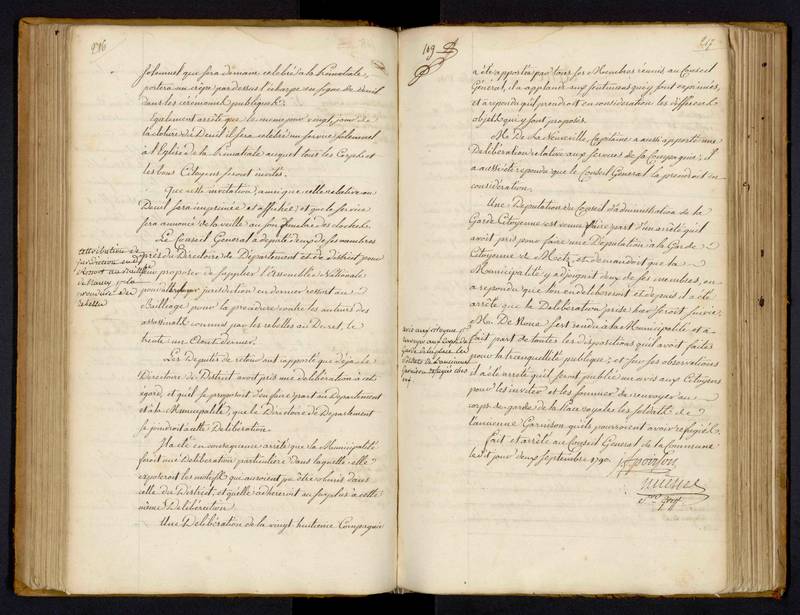 216
solennel que sera demain célébré à la Primatiale,
portera un crêpe par dessus l'écharpe en signe de deuil
dans les cérémonies publiques.
Egalement arrêté que le même jour vingt, jour de
la cloture du Deuil il sera célébré un service solennel
à l'Eglise de la Primatiale auquel tous les Corps et
les bons Citoyens seront invités.
Que cette invitation, ainsi que celle relative au
Deuil sera imprimée et affichée; et que le service
sera annoncé de la veille au son funebre des cloches.
Le Conseil Général a député deux de ses membres
attribution de
jurisdiction en der
Ressort au Bailliage
de Nancy pr la
procedure des
rebelles
près du Directoire de Département et de District pour
leur proposer de supplier l'Assemblée Nationale
pour jurisdiction en dernier ressort au
Bailliage pour la procedure contre les auteurs des
assassinats commis par les rebelles au Decret, le
trente un Aout dernier.
Les Députés de retour ont rapporté que déja le
Directoire de District avoit pris une délibération à cet
égard, et qu'il se proposoit d'en faire part au Département
et à la Municipalité, que le Directoire de Département
se joindroit à cette Délibération.
Il a été en conséquence arrêté que la Municipalité
feroit une Délibération particulière dans laquelle elle
exposeroit les motifs qui auroient pu être omis dans
celle du District, et qu'elle adhereroit au surplus à cette
même Délibération
Une Délibération de la vingt huitieme Compagnie
109
217
a été apportée par tous ses Membres réunis au Conseil
Général, il a applaudi aux sentimens qui y sont exprimés,
et a répondu qu'il prendroit en considération les différens
objets qui y sont proposés.
M. De La Neuveville, Capitaine a aussi apporté une
Délibération relative aux services de sa Compagnie; il
a aussi été répondu que le Conseil Général la prendroit en
considération.
Une Députation du Conseil d'administration de la
Garde Citoyenne est venue faire part d'un arrêté qu'il
avoit pris pour faire une Députation à la Garde
Citoyenne de Metz et demandoit que la
Municipalité y adjoignit deux de ses membres, on
a répondu que l'on en delibereroit et depuis il a été
arrêté que la Délibération prise hier seroit suivie.
avis aux citoyens pr
renvoyer aux corps de
garde de la place les
soldats de l'ancienne
garnison refugiés chés
eux
M. De Noue s'est rendu à la Municipalité et a
fait part de toutes les dispositions qu'il avoit faites
pour la tranquillité publique; et sur ses observations
il a été arrêté qu'il seroit publié un avis aux Citoyens
pour les inviter et les sommer de renvoyer au
corps de garde de la Place royale les soldats de
l'ancienne Garnison qu'ils pourroient avoir refugiés.
Fait et arrêté au Conseil Général de la Commune
le dit jour deux Septembre 1790.
Poirson